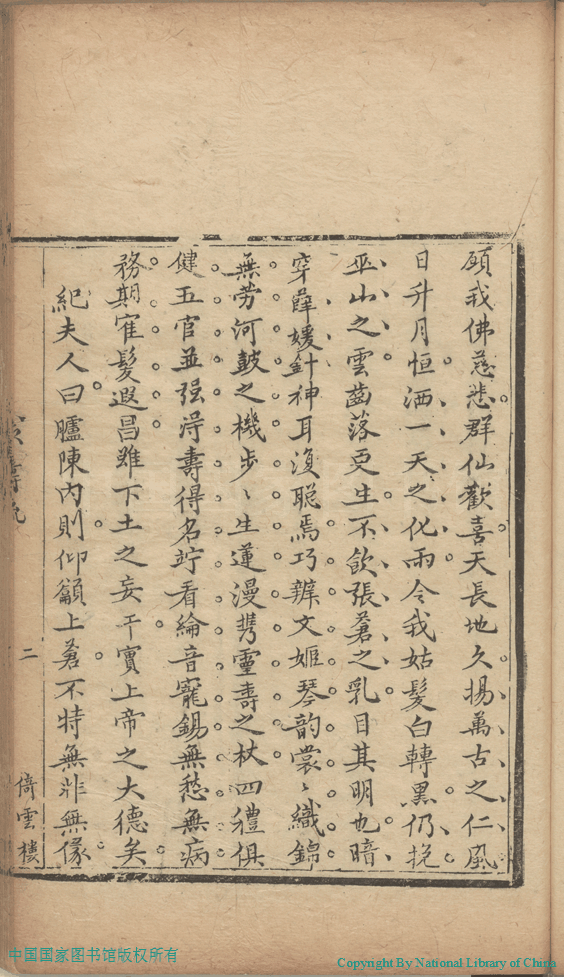 願我佛慈悲群仙歡喜天長地久揚萬古之仁風
日升月恒洒一天之化雨令我姑髮白轉黑仍挽
巫山之雲齒落更生不飲張蒼之乳目其明也暗
穿薛媛針神耳復聰焉巧辨文姬琴韵裳〻織錦
無勞河鼓之機步〻生蓮漫携靈壽之杖四禮俱
健五官並强淂壽得名竚看綸音寵錫無愁無病
務期寉髮遐昌雖下土之妄干實上帝之大德矣
紀夫人曰臚陳內則仰籲上蒼不特無非無儀
二
倚雲樓
中国国家图书馆版权所有
Copyright By National Library of China